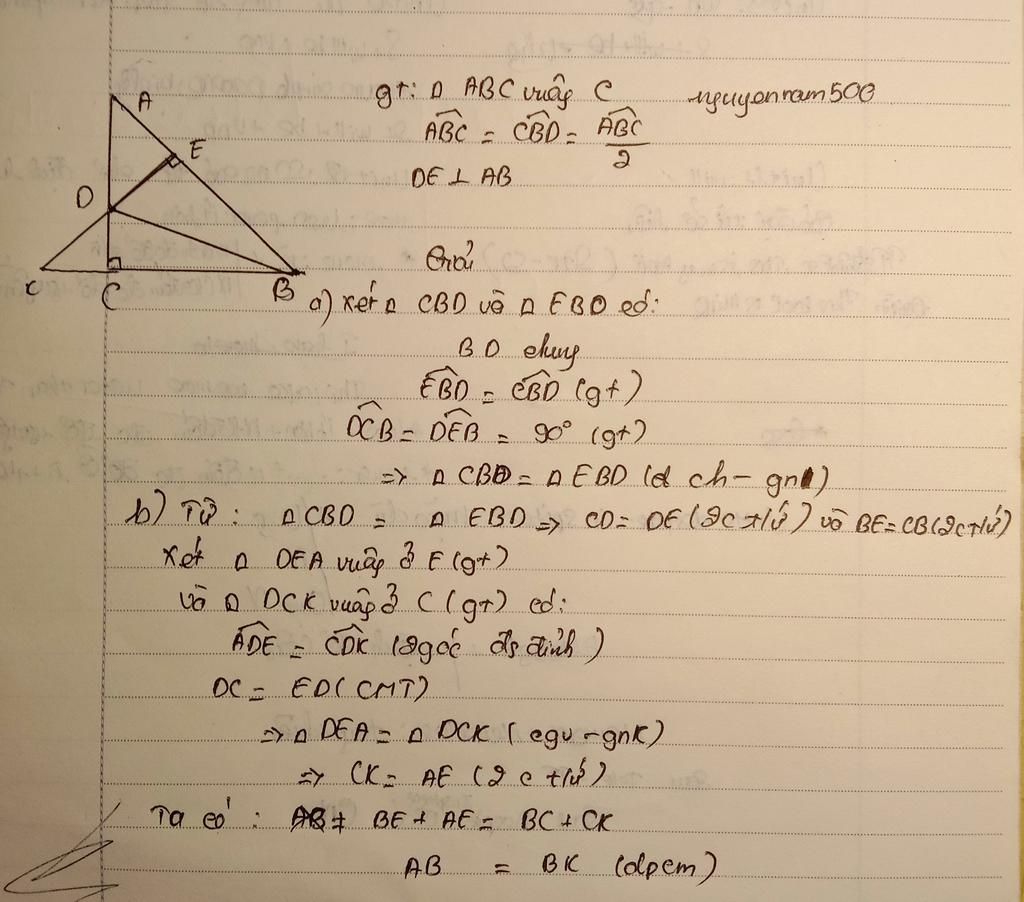 A
E
D
K
C
B
gt: Δ ABC vuông C nguyennam500
$\widehat{ABC}$ = $\widehat{CBD}$ = $\frac{\widehat{ABC}}{2}$
DE ⊥ AB
Giải
a) Xét Δ CBD và Δ EBD có:
BD chung
$\widehat{EBD}$ = $\widehat{CBD}$ (gt)
$\widehat{DCB}$ = $\widehat{DEB}$ = 90° (gt)
=> Δ CBD = Δ EBD (ch - gn)
b) Từ: Δ CBD = Δ EBD => CD = DE (2c t/ứ) và BE = CB (2c t/ứ)
Xét Δ DEA vuông ở E (gt)
và Δ DCK vuông ở C (gt) có:
$\widehat{ADE}$ = $\widehat{CDK}$ (2 góc đ đỉnh)
DC = ED (CMT)
=> Δ DEA = Δ DCK (cgv - gnk)
=> CK = AE (2 c t/ứ)
Ta có: BE + AE = BC + CK
AB = BK (dpcm)